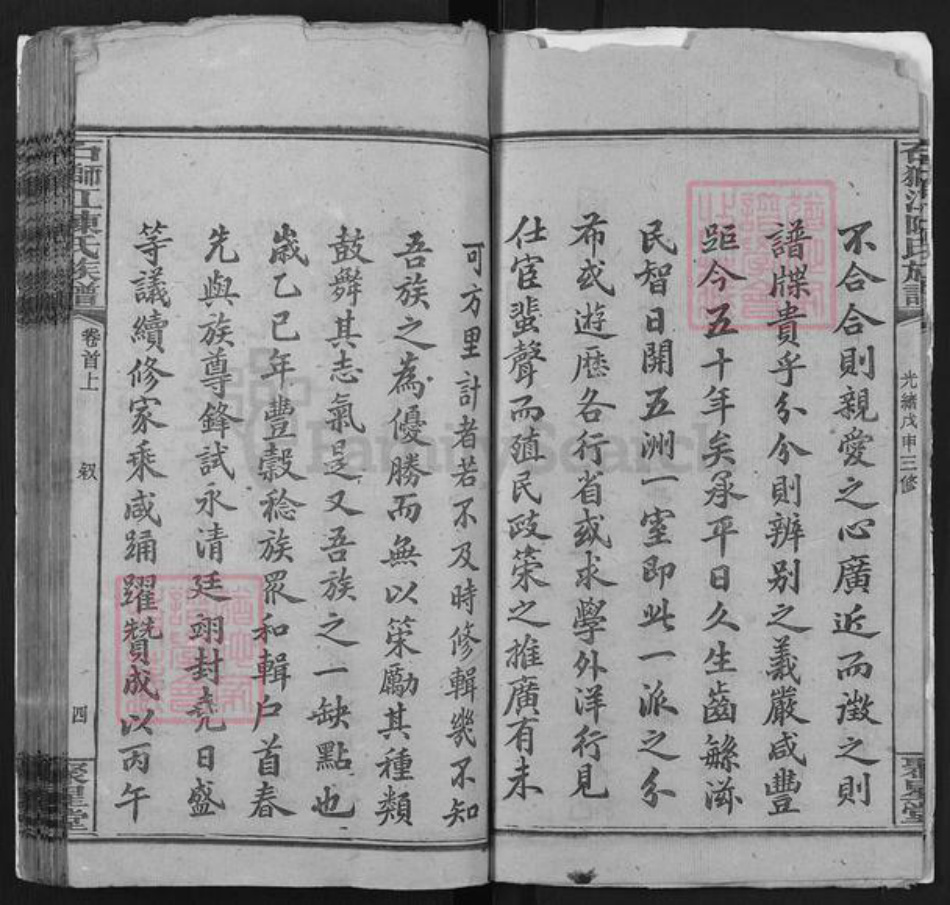 石獅江陳氏族譜
光緒戊申三修
聚星堂
不合合則親愛之心廣近而徵之則
譜牒貴乎分分則辨别之義嚴咸豐
距今五十年矣承平日久生齒緐滋
民智日開五洲一室即此一派之分
布或遊歷各行省或求學外洋行見
仕宦蜚聲而殖民政策之推廣有未
可方里計者若不及時修輯幾不知
吾族之為優勝而無以策勵其種類
鼓舞其志氣是又吾族之一缺點也
歲乙巳年豐穀稔族眾和輯户首春
先與族尊鋒試永清廷翊封堯日盛
等議續修家乘咸踊躍贊成以丙午
石師江陳氏族譜
卷首上
叙
四
聚星堂
FamilySearch